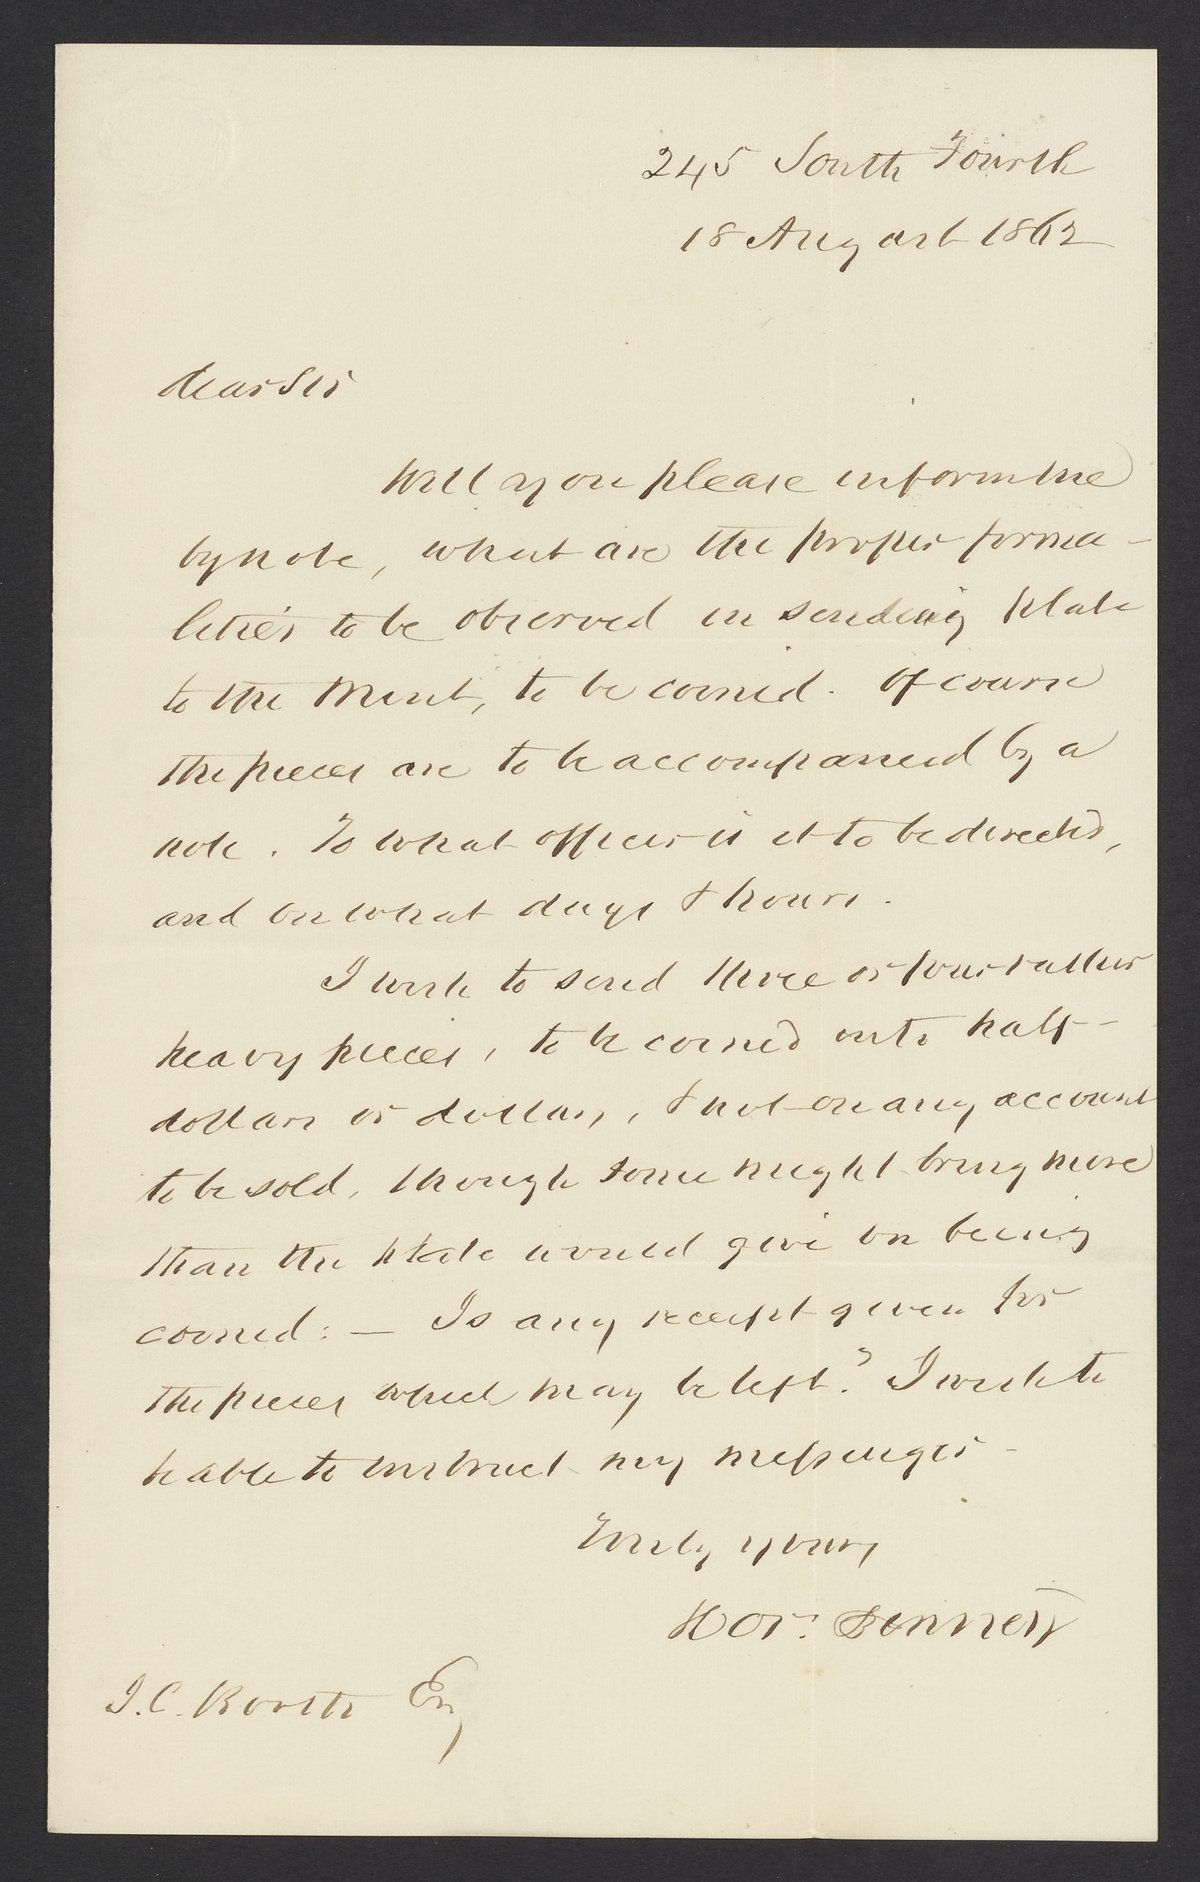 245 South Fourth
18 August 1862
dear Sir
Will you please inform me
by note, what are the proper forma-
lities to be observed in sending plate
to the Mint, to be coined. Of course
the pieces are to be accompanied by a
note. To what officer is it to be directed,
and on what days & hours.
I wish to send three or four rather
heavy pieces, to be coined into half-
dollars or dollars, & not on any account
to be sold, though some might bring more
than the plate would give on being
coined: — Is any receipt given for
the pieces which may be left? I wish to
be able to instruct my messenger -
Truly yours
Hor. Binney
J. C. Booth Esq